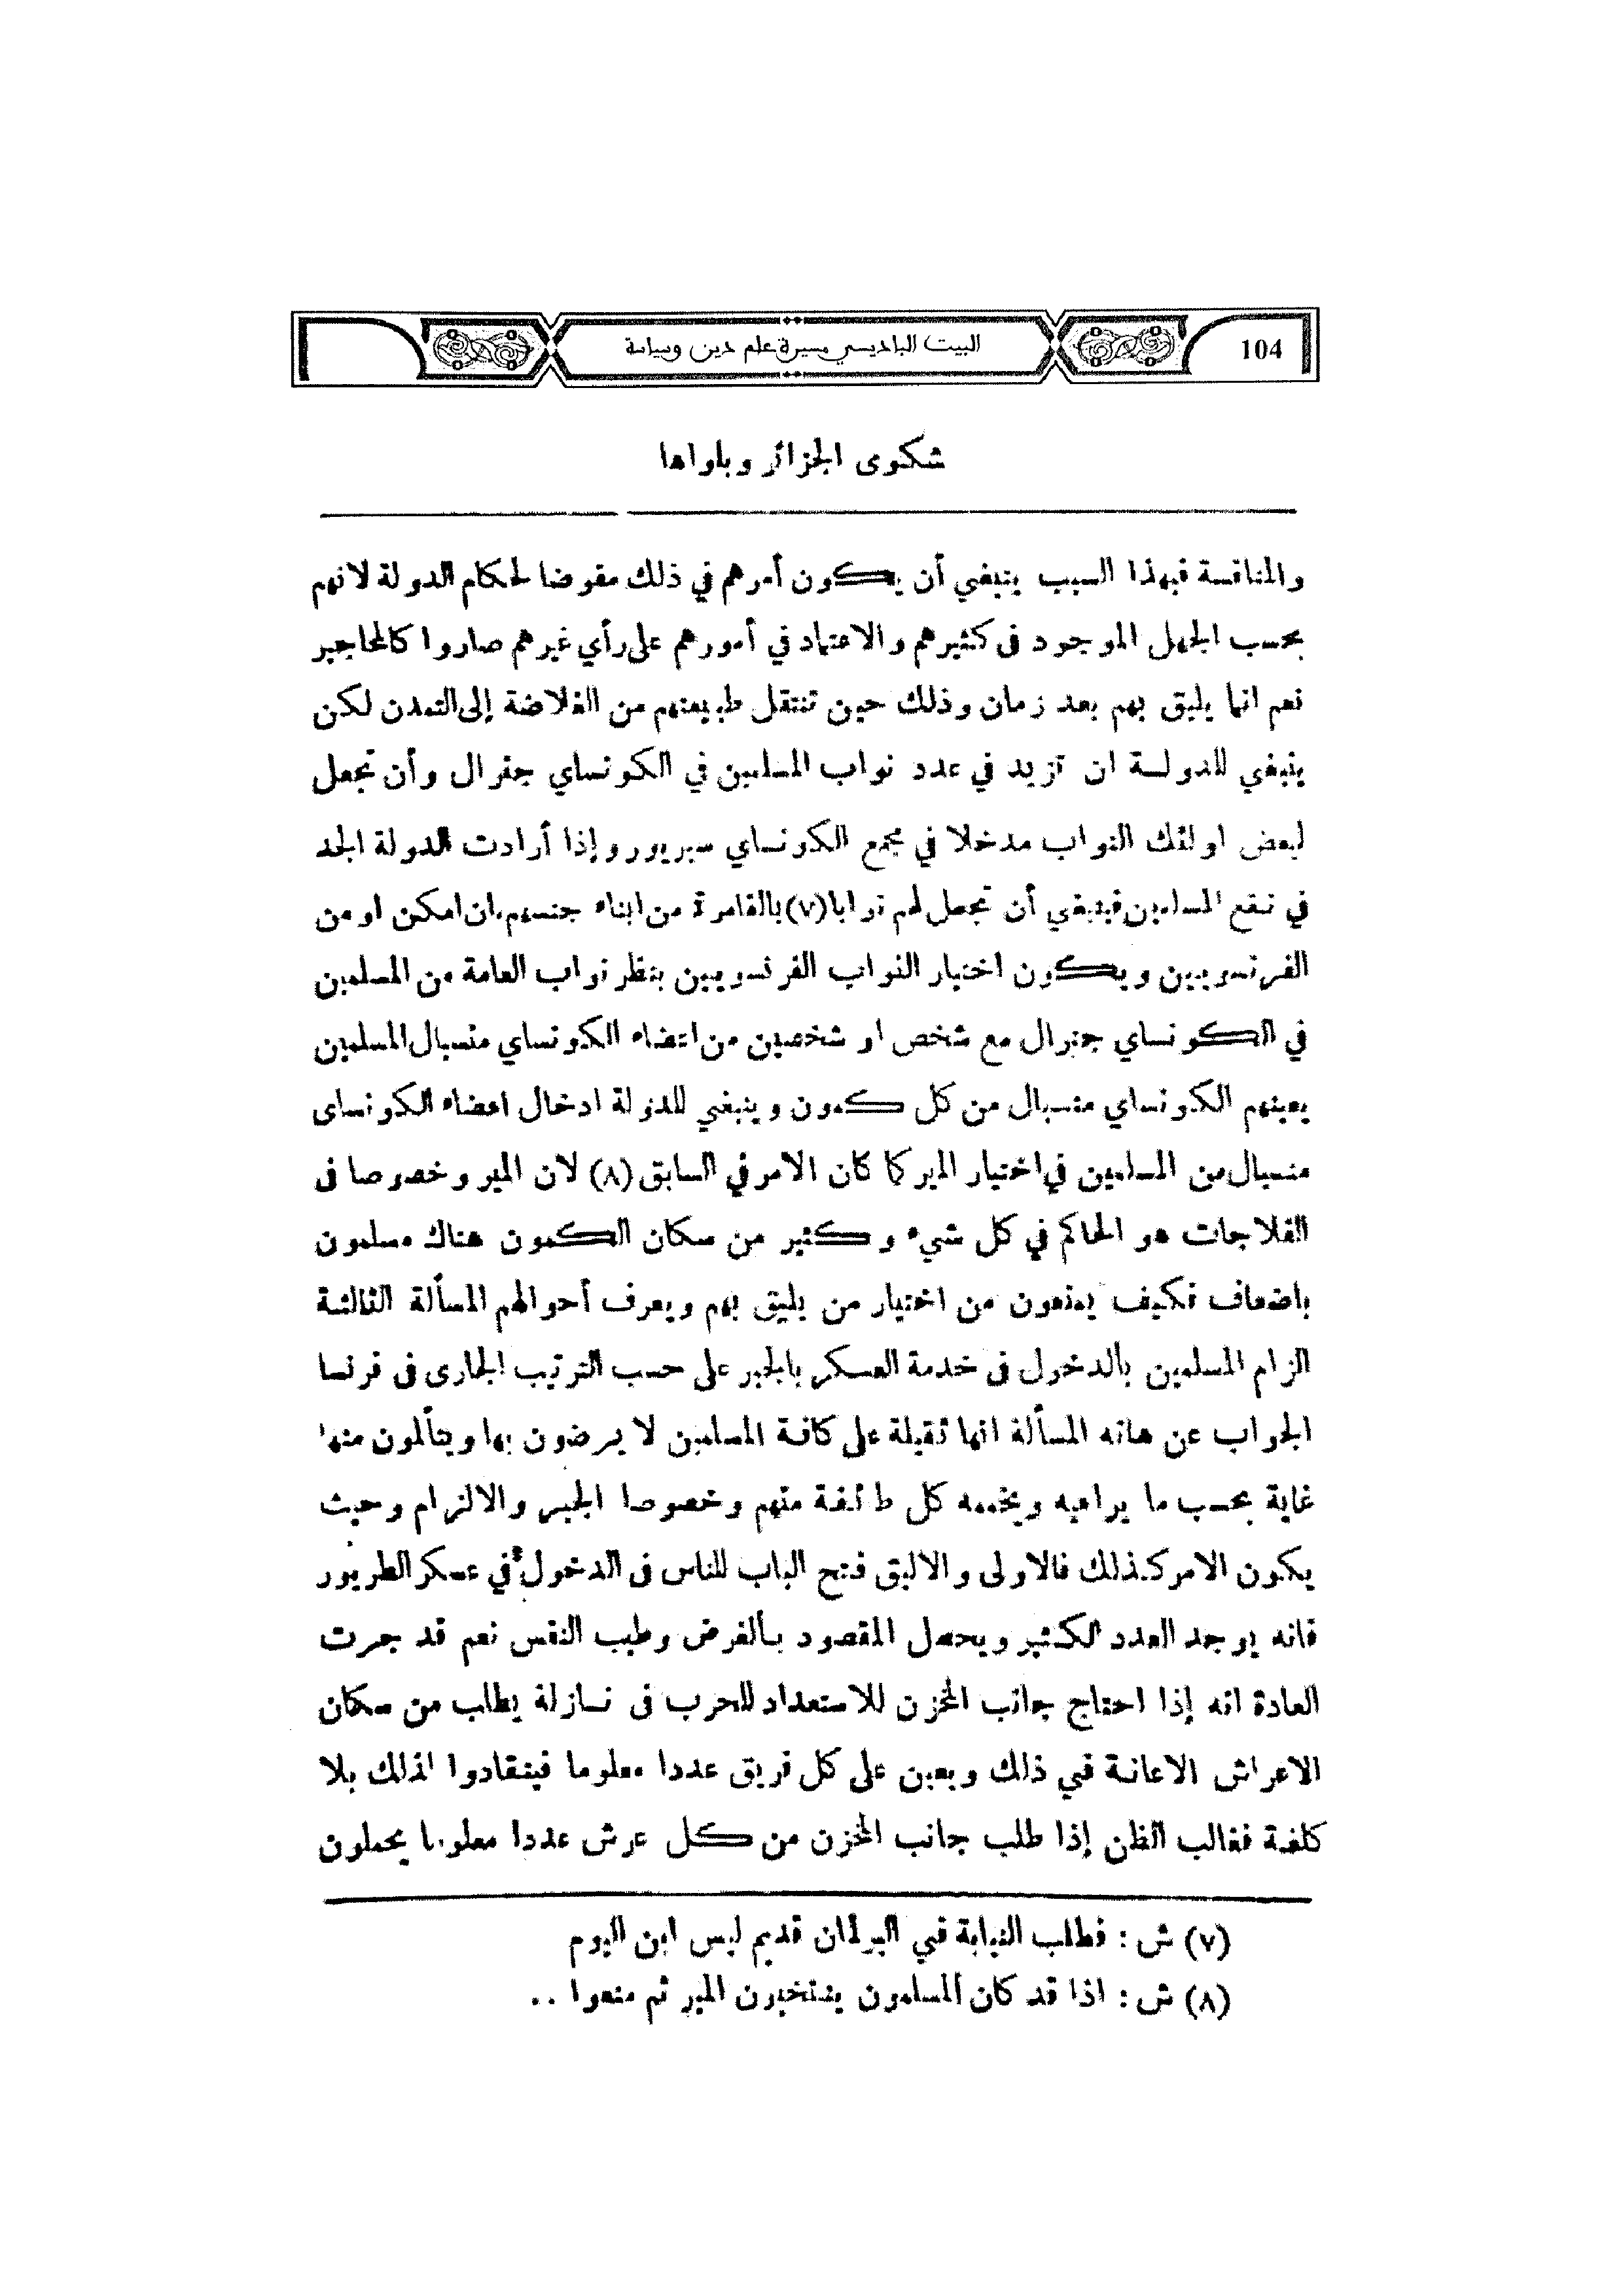 104
البيت الباديسي مسيرة علم دين وسياسة
شكوى الجزائر وبلواها
والمنافسة فبهذا السبب ينبغي أن يكون أمرهم في ذلك مفوضا لحكام الدولة لانهم
بحسب الجهل الموجود فى كثيرهم والاعتماد في أمورهم على رأي غيرهم صاروا كالمحاجير
نعم انما يليق بهم بعد زمان وذلك حين تنتقل طبيعتهم من الغلاضة إلى التمدن لكن
ينبغي للدولة ان تزيد في عدد نواب المسلمين في الكونساي جنرال وأن تجعل
لبعض اولئك النواب مدخلا في مجمع الكونساي سبريور وإذا أرادت الدولة الجد
في نفع المسلمين فينبغي أن تجعل لهم نوابا (٧) بالقامرة من ابناء جنسهم، ان امكن او من
الفرنسويين ويكون اختيار النواب الفرنسويين بنظر نواب العامة من المسلمين
في الكونساي جنرال مع شخص او شخصين من اعضاء الكونساي منسبال المسلمين
يعينهم الكونساي منسبال من كل كمون وينبغي للدولة ادخال اعضاء الكونساى
منسبال من المسلمين في اختيار المير كما كان الامر في السابق (٨) لان المير وخصوصا فى
الفلاجات هو الحاكم في كل شيء وكثير من سكان الكمون هناك مسلمون
باضعاف فكيف يمنعون من اختيار من يليق بهم ويعرف أحوالهم المسألة الثالثة
الزام المسلمين بالدخول فى خدمة العسكر بالجبر على حسب الترتيب الجارى فى فرنسا
الجواب عن هاته المسألة انها ثقيلة على كافة المسلمين لا يرضون بها ويتألمون منها
غاية بحسب ما يراعيه ويخصه كل طائفة منهم وخصوصا الجبر والالزام وحيث
يكون الامر كذلك فالاولى والاليق فتح الباب للناس فى الدخول في عسكر الطريور
فانه يوجد العدد الكثير ويحصل المقصود بالفرض وطيب النفس نعم قد جرت
العادة انه إذا احتاج جانب المخزن للاستعداد للحرب فى نازلة يطلب من سكان
الاعراش الاعانة في ذلك ويعين على كل فريق عددا معلوما فينقادوا لذلك بلا
كلفة فغالب الظن إذا طلب جانب المخزن من كل عرش عددا معلوما يحملون
(٧) ش : فطلب النيابة في البرلمان قديم ليس ابن اليوم
(٨) ش : اذا قد كان المسلمون ينتخبون المير ثم منعوا ..